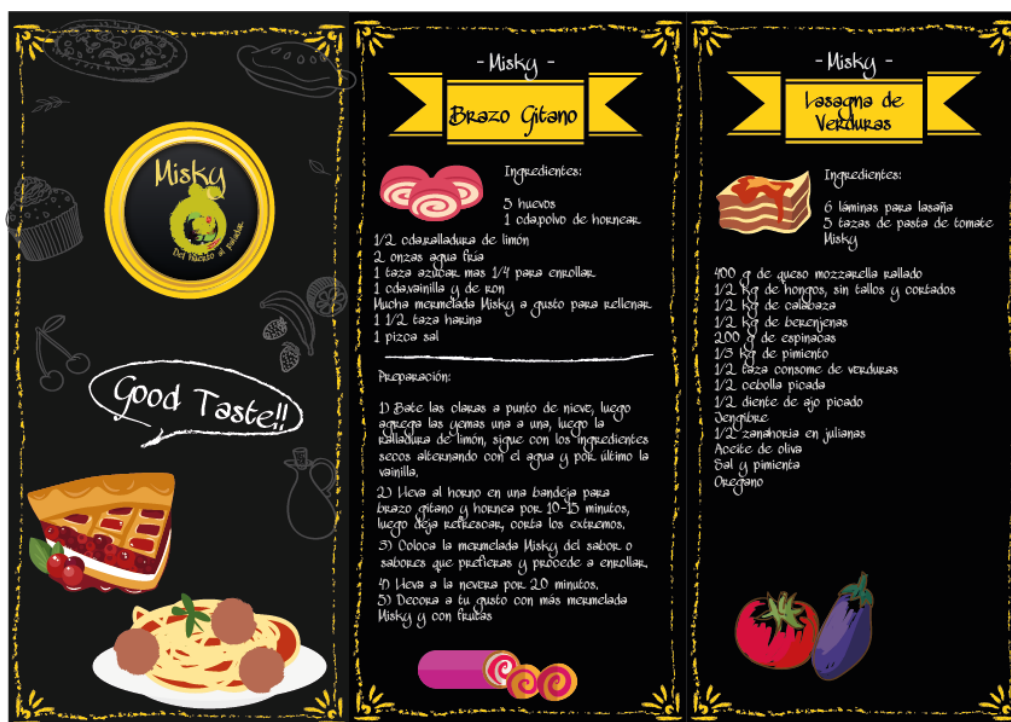 Misky
Del huerto al paladar
Good Taste!!
- Misky -
Brazo Gitano
Ingredientes:
5 huevos
1 cda.polvo de hornear
1/2 cda.ralladura de limón
2 onzas agua fría
1 taza azúcar mas 1/4 para enrollar
1 cda.vainilla y de ron
Mucha mermelada Misky a gusto para rellenar
1 1/2 taza harina
1 pizca sal
Preparación:
1) Bate las claras a punto de nieve, luego
agrega las yemas una a una, luego la
ralladura de limón, sigue con los ingredientes
secos alternando con el agua y por último la
vainilla.
2) Lleva al horno en una bandeja para
brazo gitano y hornea por 10-15 minutos,
luego deja refrescar, corta los extremos.
3) Coloca la mermelada Misky del sabor o
sabores que prefieras y procede a enrollar.
4) Lleva a la nevera por 20 minutos.
5) Decora a tu gusto con más mermelada
Misky y con frutas
- Misky -
Lasagna de
Verduras
Ingredientes:
6 láminas para lasaña
5 tazas de pasta de tomate
Misky
400 g de queso mozzarella rallado
1/2 kg de hongos, sin tallos y cortados
1/2 kg de calabaza
1/2 kg de berenjenas
200 g de espinacas
1/3 kg de pimiento
1/2 taza consome de verduras
1/2 cebolla picada
1/2 diente de ajo picado
Jengibre
1/2 zanahoria en julianas
Aceite de oliva
Sal y pimienta
Oregano